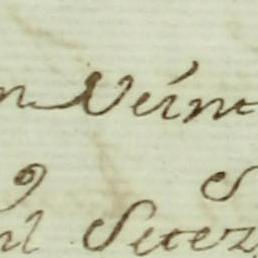 n Veint
nl Setez